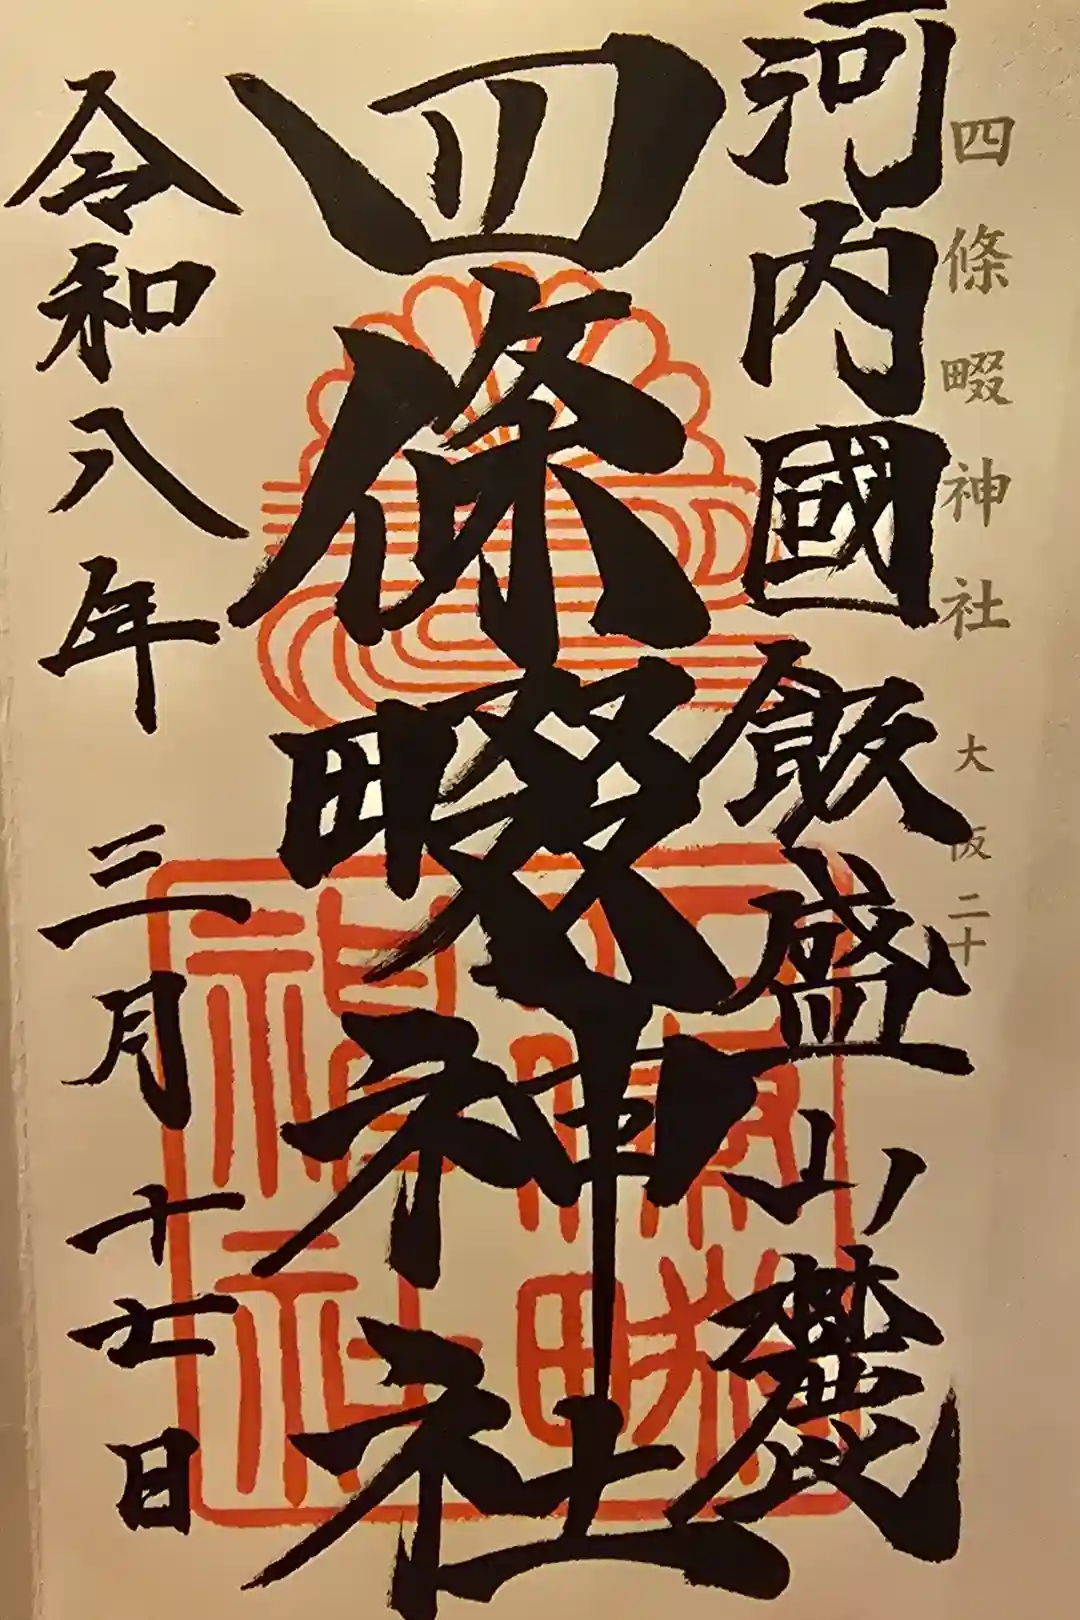 四條畷神社 大阪二十
河内國飯盛山麓
四條畷神社
令和八年三月十七日